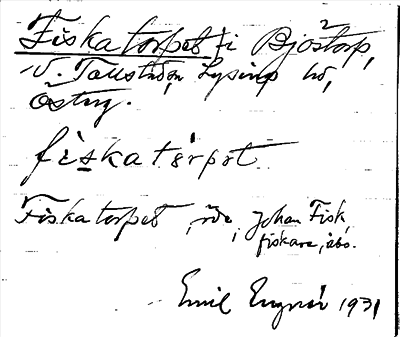 Fiskatorpet i Björstorp,
V. Tollstad sn, Lysings hd,
Östg.
fiskatörpet
Fiskatorpet, öde, Johan Fisk,
fiskare, åbo.
Emil 1931